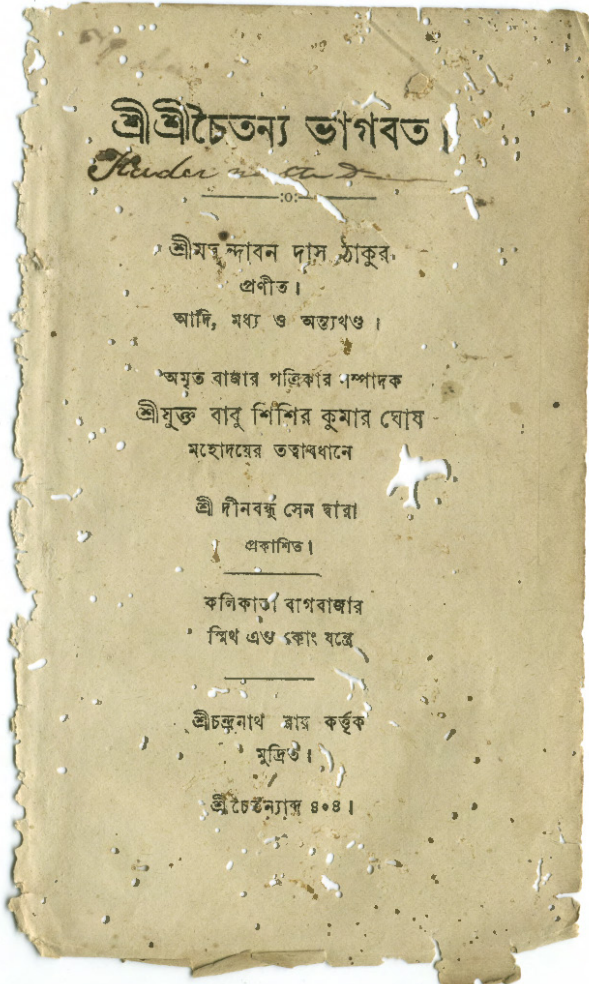 শ্রীশ্রীচৈতন্য ভাগবত।
:o:
শ্রীমদ্বৃন্দাবন দাস ঠাকুর
প্রণীত।
আদি, মধ্য ও অন্ত্যখণ্ড।
অমৃত বাজার পত্রিকার সম্পাদক
শ্রীযুক্ত বাবু শিশির কুমার ঘোষ
মহোদয়ের তত্বাবধানে
শ্রী দীনবন্ধু সেন দ্বারা
প্রকাশিত।
কলিকাতা বাগবাজার
স্মিথ এণ্ড কোং যন্ত্রে
শ্রীচন্দ্রনাথ রায় কর্ত্তৃক
মুদ্রিত।
শ্রীচৈতন্যাব্দ ৪০৪।